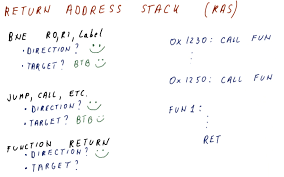 RETURN ADDRESS STACK (RAS)
BNE R0,R1, Label
• DIRECTION?
• TARGET? BTB
JUMP, CALL, ETC.
• DIRECTION?
• TARGET? BTB
FUNCTION RETURN
• DIRECTION?
• TARGET?
0x1230: CALL FUN
0x1250: CALL FUN
FUN1:
RET